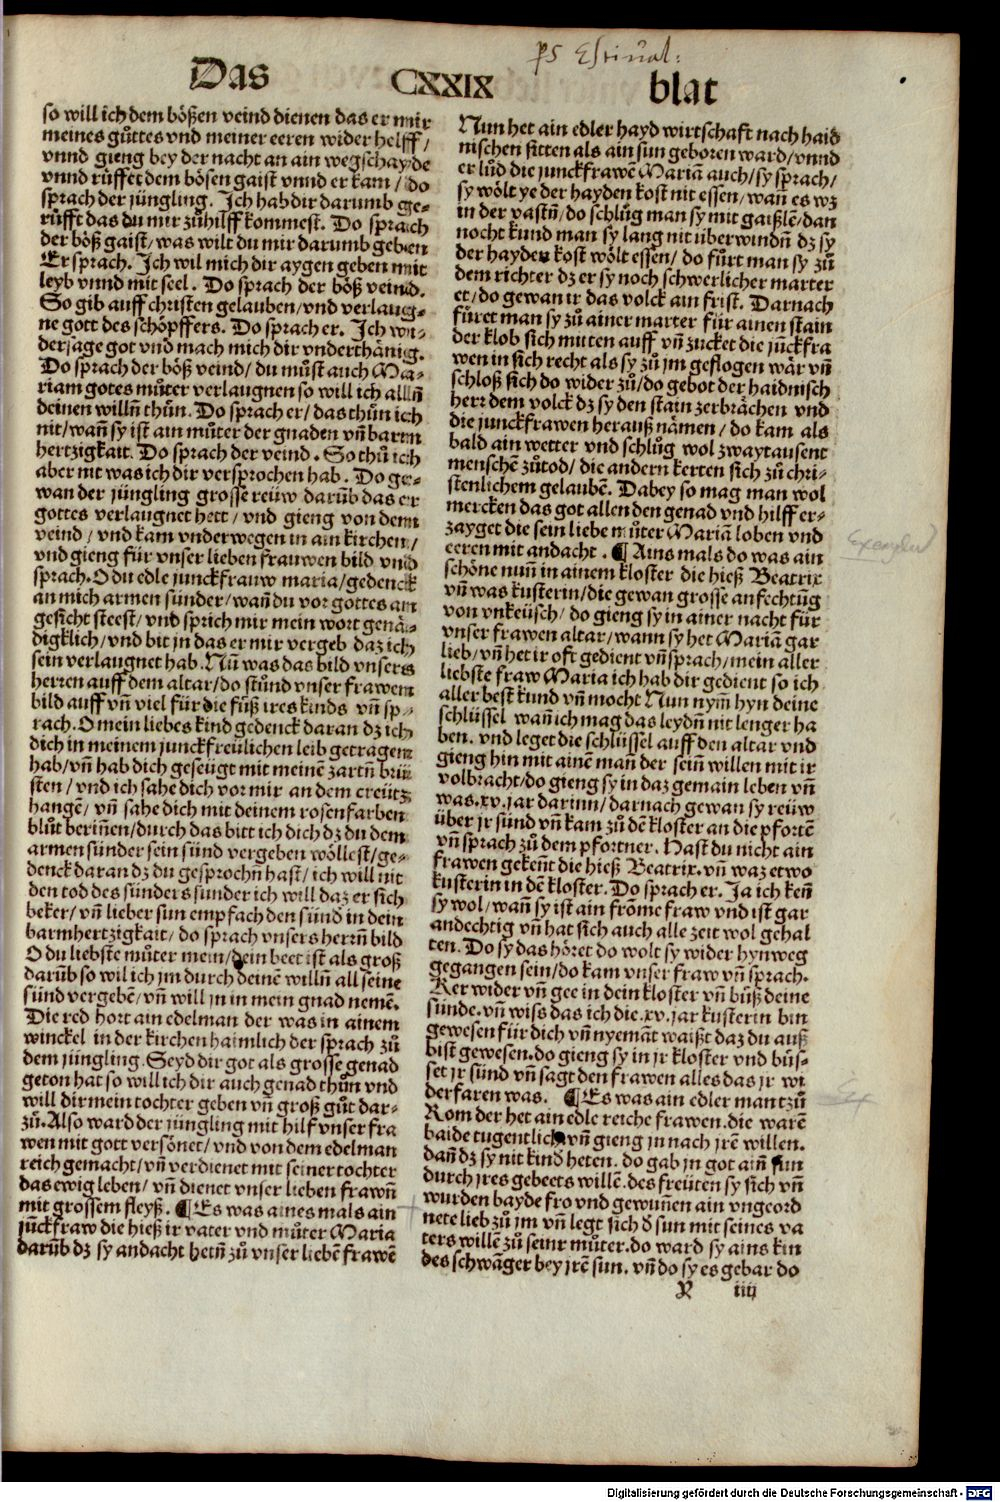 ps Estiual:
Das CXXIX blat
so will ich dem bößen veind dienen das er mir
meines gůttes vnd meiner eeren wider helff/
vnnd gieng bey der nacht an ain wegschayde
vnnd růffet dem bösen gaist vnnd er kam/do
sprach der jüngling. Ich hab dir darumb ge⸗
růfft das du mir zůhilff kommest. Do sprach
der böß gaist/was wilt du mir darumb geben
Er sprach. Ich wil mich dir aygen geben mit
leyb vnnd mit seel. Do sprach der böß veind.
So gib auff christen gelauben/vnd verlaug⸗
ne gott des schöpffers. Do sprach er. Ich wi⸗
dersage got vnd mach mich dir vnderthänig.
Do sprach der böß veind/du můst auch Ma⸗
riam gotes můter verlaugnen so will ich alln̄
deinen willn̄ thůn. Do sprach er/das thůn ich
nit/wan̄ sy ist ain můter der gnaden vn̄ barm
hertzigkait. Do sprach der veind. So thů ich
aber nit was ich dir versprochen hab. Do ge⸗
wan der jüngling grosse reüw darūb das er
gottes verlaugnet hett/vnd gieng von dem
veind/vnd kam vnderwegen in ain kirchen/
vnd gieng für vnser lieben frauwen bild vnd
sprach. O du edle junckfrauw maria/gedenck
an mich armen sünder/wan̄ du vor gottes an
gesicht steest/vnd sprich mir mein wort genä⸗
digklich/vnd bit jn das er mir vergeb daz ich
sein verlaugnet hab. Nū was das bild vnsers
herren auff dem altar/do stůnd vnser frawen
bild auff vn̄ viel für die fůß ires kinds vn̄ sp⸗
rach. O mein liebes kind gedenck daran dz ich
dich in meinem junckfreülichen leib getragen
hab/vn̄ hab dich geseügt mit meinē zartn̄ brü
sten/vnd ich sahe dich vor mir an dem creütz
hangē/vn̄ sahe dich mit deinem rosenfarben
blůt berin̄en/durch das bitt ich dich dz du dem
armen sünder sein sünd vergeben wöllest/ge⸗
denck daran dz du gesprochn̄ hast/ich will nit
den tod des sünders sunder ich will daz er sich
beker/vn̄ lieber sun empfach den sünd in dein
barmhertzigkait/do sprach vnsers herrn̄ bild
O du liebste můter mein/dein beet ist als groß
darūb so wil ich jm durch deinē willn̄ all seine
sünd vergebē/vn̄ will jn in mein gnad nemē.
Die red hort ain edelman der was in ainem
winckel in der kirchen haimlich der sprach zů
dem jüngling. Seyd dir got als grosse genad
geton hat so will ich dir auch genad thůn vnd
will dir mein tochter geben vn̄ groß gůt dar⸗
zů. Also ward der jüngling mit hilf vnser fra
wen mit gott versönet/vnd von dem edelman
reich gemacht/vn̄ verdienet mit seiner tochter
das ewig leben/vn̄ dienet vnser lieben frawn̄
mit grossem fleyß. ¶Es was aines mals ain
jūckfraw die hieß ir vater vnd můter Maria
darūb dz sy andacht hetn̄ zů vnser liebē frawē
Nun het ain edler hayd wirtschaft nach haid
nischen sitten als ain sun geboren ward/vnnd
er lůd die junckfrawē Mariā auch/sy sprach/
sy wölt ye der hayden kost nit essen/wan̄ es wz
in der vastn̄/do schlůg man sy mit gaißlē/dan
nocht kund man sy lang nit überwindn̄ dz sy
der hayden kost wölt essen/do fůrt man sy zů
dem richter dz er sy noch schwerlicher marter
et/do gewan ir das volck ain frist. Darnach
fůret man sy zů ainer marter für ainen stain
der klob sich mitten auff vn̄ zucket die jūckfra
wen in sich recht als sy zů jm geflogen wär vn̄
schloß sich do wider zů/do gebot der haidnisch
herr dem volck dz sy den stain zerbrächen vnd
die junckfrawen herauß nämen/do kam als
bald ain wetter vnd schlůg wol zwaytausent
menschē zůtod/die andern kerten sich zů chri⸗
stenlichem gelaubē. Dabey so mag man wol
mercken das got allen den genad vnd hilff er⸗
zayget die sein liebe můter Mariā loben vnd
eeren mit andacht. ¶Ains mals do was ain
schöne nun̄ in ainem kloster die hieß Beatrix
vn̄ was kusterin/die gewan grosse anfechtūg
von vnkeüsch/do gieng sy in ainer nacht für
vnser frawen altar/wann sy het Mariā gar
lieb/vn̄ het ir oft gedient vn̄ sprach/mein aller
liebste fraw Maria ich hab dir gedient so ich
aller best kund vn̄ mocht Nun nym̄ hyn deine
schlüssel wan̄ ich mag das leydn̄ nit lenger ha
ben. vnd leget die schlüssel auff den altar vnd
gieng hin mit ainē man̄ der sein̄ willen mit ir
volbracht/do gieng sy in daz gemain leben vn̄
was.xv.jar darinn/darnach gewan sy reüw
über jr sünd vn̄ kam zů dē kloster an die pfortē
vn̄ sprach zů dem pfortner. Hast du nicht ain
frawen gekēnt die hieß Beatrix.vn̄ waz etwo
kusterin in dē kloster. Do sprach er. Ja ich ken̄
sy wol/wan̄ sy ist ain frōme fraw vnd ist gar
andechtig vn̄ hat sich auch alle zeit wol gehal
ten. Do sy das höret do wolt sy wider hynweg
gegangen sein/do kam vnser fraw vn̄ sprach.
Ker wider vn̄ gee in dein kloster vn̄ bůß deine
sünde.vn̄ wiss das ich die.xv.jar kusterin bin
gewesen für dich vn̄ nyemāt waißt daz du auß
bist gewesen.do gieng sy in jr kloster vnd bůs⸗
set jr sünd vn̄ sagt den frawen alles das jr wi
derfaren was. ¶Es was ain edler man tzů
Rom der het ain edle reiche frawen.die warē
baide tugentlich vn̄ gieng jn nach jrē willen.
dan̄ dz sy nit kind heten. do gab jn got ain̄ sun
durch jres gebeets willē.des freüten sy sich vn̄
wurden bayde fro vnd gewun̄en ain vngeord
nete lieb zů jm vn̄ legt sich d̄ sun mit seines va
ters willē zů seinr můter.do ward sy ains kin
des schwāger bey jrē sun. vn̄ do sy es gebar do
R iiij
Digitalisierung gefördert durch die Deutsche Forschungsgemeinschaft - DFG